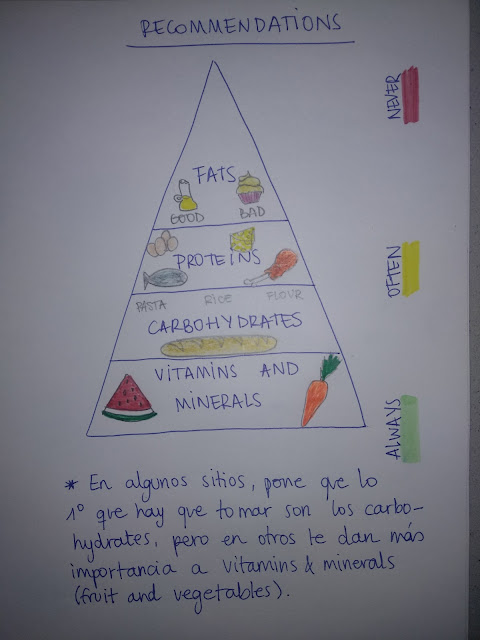 RECOMMENDATIONS
NEVER
FATS
GOOD BAD
PROTEINS
OFTEN
PASTA RICE FLOUR
CARBOHYDRATES
VITAMINS AND
MINERALS
ALWAYS
* En algunos sitios, pone que lo
1º que hay que tomar son los carbo-
hydrates, pero en otros te dan más
importancia a vitamins & minerals
(fruit and vegetables).